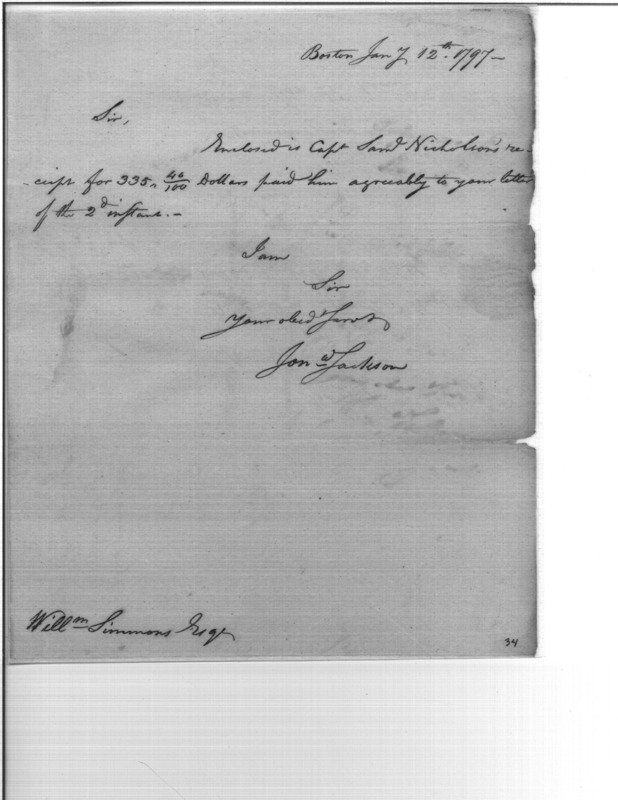 Boston Jany 12th. 1797—
Sir,
Enclosed is Capt Saml Nicholson's re-
-ceipt for 335 40/100 Dollars paid him agreeably to your letter
of the 2d instant.—
I am
Sir
Your obed Servt
Jona Jackson
Willm Simmons Esqr
34